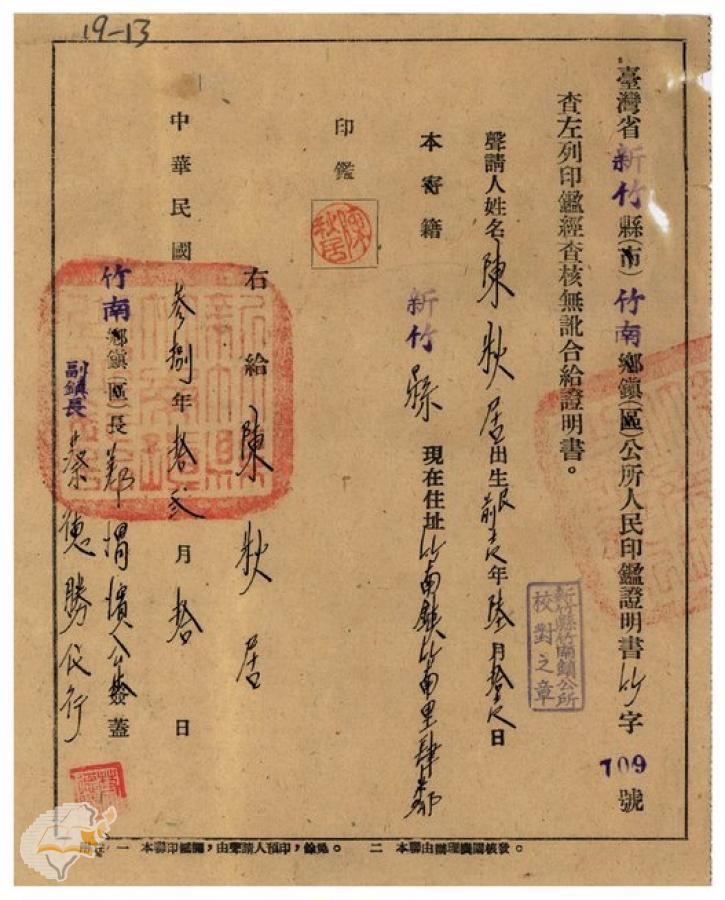 19-13
臺灣省新竹縣(市)竹南鄉鎮(區)公所人民印鑑證明書竹字709號
查左列印鑑經查核無訛合給證明書。
聲請人姓名陳秋居出生民前 年陸月 日
新竹縣竹南鎮公所
校對之章
本寄籍 新竹縣 現在住址竹南鎮竹南里肆鄰
印鑑
陳秋居
右給陳秋居
中華民國叁捌年拾弍月拾日
竹南鄉鎮(區)長鄭 公差 蓋
副鎮長蔡 勝代行
一 本聯印鑑欄,由聲請人預印,餘免。 二 本聯由辦理機關核發。